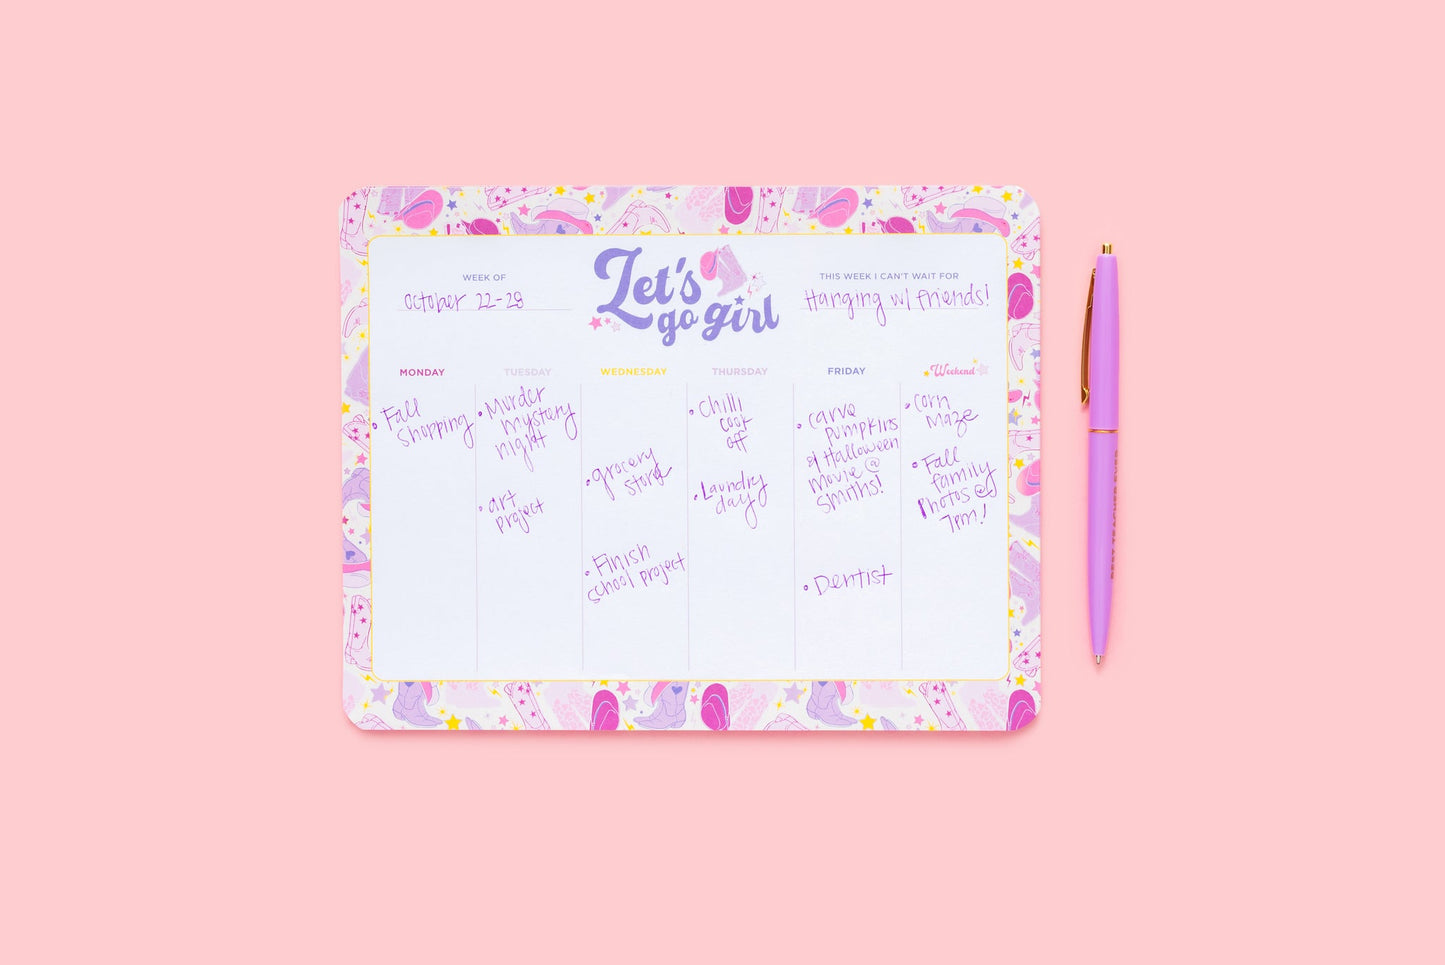 WEEK OF
October 22-28
Let's
go girl
THIS WEEK I CAN'T WAIT FOR
Hanging w/ friends!
MONDAY
TUESDAY
WEDNESDAY
THURSDAY
FRIDAY
Weekend
• Fall
shopping
• Murder
mystery
night
• art
project
• grocery
store
• Finish
school project
• Chilli
cook
off
• Laundry
day
• carve
pumpkins
& Halloween
movie @
Smiths!
• Dentist
• Corn
Maze
• Fall
family
Photos @
7pm!
BEST TEACHER EVER